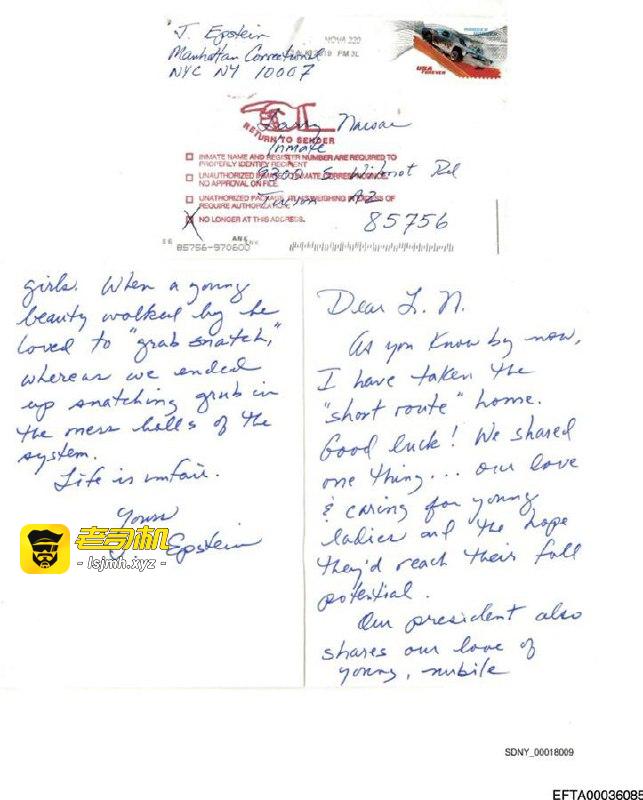 J. Epstein
Manhattan Correctional
NYC NY 10007
NOVA 220
2019 PM 3L
USA
FOREVER
RETURN TO SENDER
Larry Nassar
Inmate
9300 S Wilmot Rd
Tucson AZ
85756
INMATE NAME AND REGISTER NUMBER ARE REQUIRED TO
PROPERLY IDENTIFY RECIPIENT
UNAUTHORIZED INMATE TO INMATE CORRESPONDENCE.
NO APPROVAL ON FILE.
UNATHORIZED PACKAGE WEIGHING IN EXCESS OF
REQUIRE AUTHORIZATION.
X NO LONGER AT THIS ADDRESS.
85756-970600
Dear L. N.
As you know by now,
I have taken the
"short route" home.
Good luck! We shared
one thing... our love
& caring for young
ladies and the hope
they'd reach their full
potential.
Our president also
shares our love of
young, nubile
girls. When a young
beauty walked by he
loved to "grab snatch,"
whereas we ended
up snatching grub in
the mess halls of the
system.
Life is unfair.
Yours
J. Epstein
老司机
- lsjmh.xyz -
SDNY_00018009
EFTA00036085